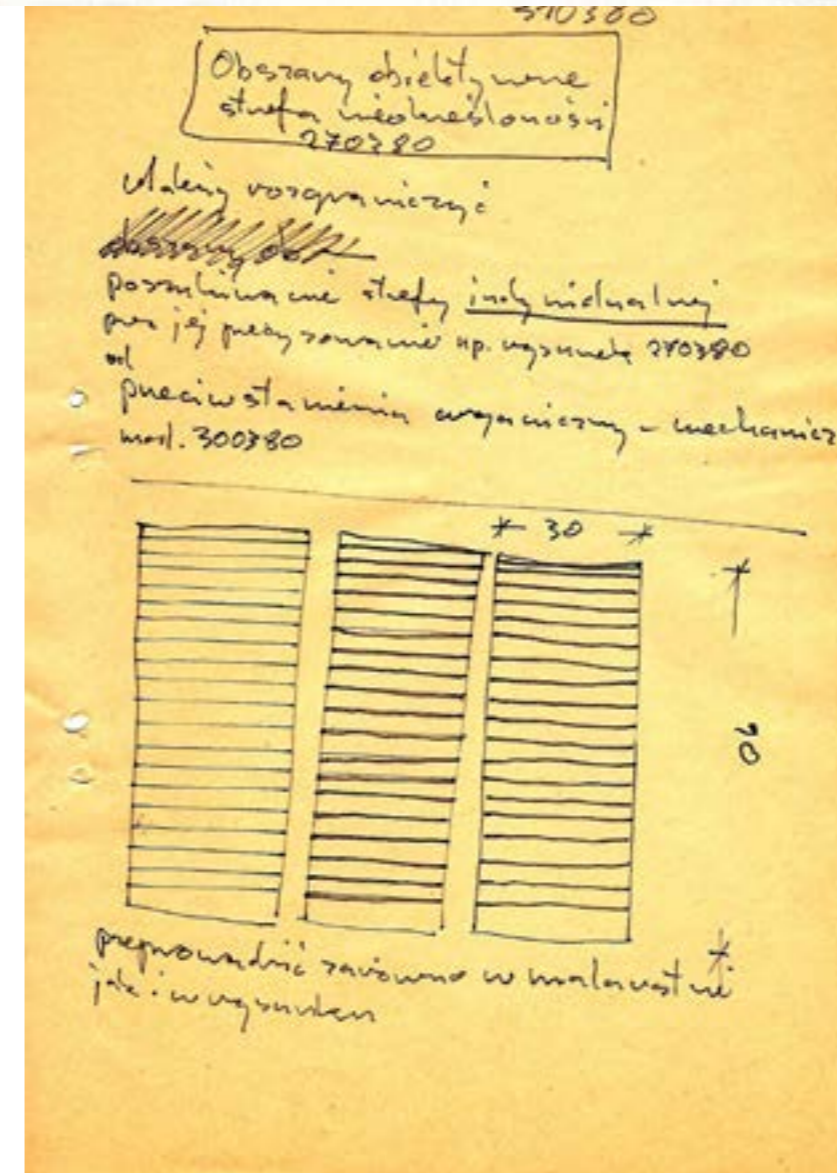 310380
Obszary obiektywne
strefa nieokreśloności
270380
należy rozgraniczyć
poszukiwanie strefy indywidualnej
przez jej precyzowanie np. rysunek 270380
od
przeciwstawienia organiczny - mechanicz
mal. 300380
30
90
przeprowadzić zarówno w malarstwie
jak i w rysunku